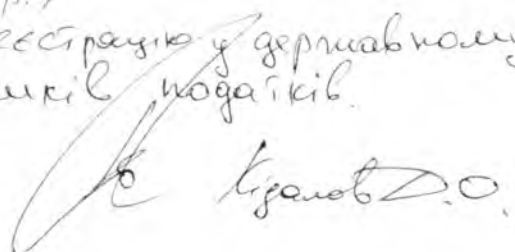 еєстрацію у державному
иків податків.
Кідалов Д.О.